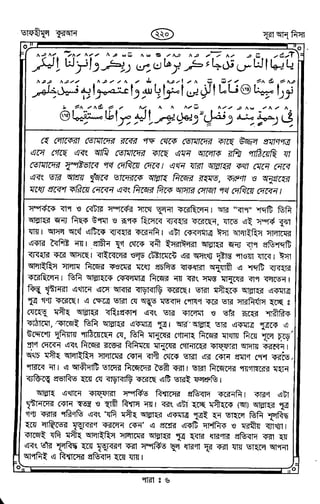 তাফহীমুল কুরআন
২২০
সূরা আন্ নিসা
يٰۤاَيُّهَا النَّاسُ قَدْ جَآءَكُمْ بُرْهَانٌ مِّنْ رَّبِّكُمْ وَاَنْزَلْنَاۤ اِلَيْكُمْ
نُوْرًا مُّبِيْنًا ﴿١٧٤﴾ فَاَمَّا الَّذِيْنَ اٰمَنُوْا بِاللّٰهِ وَاعْتَصَمُوْا بِهٖ فَسَيُدْخِلُهُمْ
فِيْ رَحْمَةٍ مِّنْهُ وَفَضْلٍ وَّيَهْدِيْهِمْ اِلَيْهِ صِرَاطًا مُّسْتَقِيْمًا ﴿١٧٥﴾
হে লোকেরা তোমাদের রবের পক্ষ থেকে তোমাদের কাছে উজ্জল প্রমাণপত্র
এসে গেছে এবং আমি তোমাদের কাছে এমন আলোক রশ্মি পাঠিয়েছি যা
তোমাদের সুস্পষ্টভাবে পথ দেখিয়ে দেবে। এখন যারা আল্লাহর কথা মেনে নেবে
এবং তার আশ্রয় খুঁজবে তাদেরকে আল্লাহ নিজের রহমত, করুণা ও অনুগ্রহের
মধ্যে প্রবেশ করিয়ে নেবেন এবং নিজের দিকে আসার সোজা পথ দেখিয়ে দেবেন।
সম্পর্ককে বাপ ও বেটার সম্পর্কের সাথে তুলনা করেছিলেন। আর "বাপ" শব্দটি তিনি
আল্লাহর জন্য নিছক উপমা ও রূপক হিসেবে ব্যবহার করেছেন, যাতে এই সম্পর্ক বুঝা
যায়। আসল অর্থে এটিকে ব্যবহার করেননি। এটা কেবলমাত্র ঈসা আলাইহিস সালামের
একার বৈশিষ্ট নয়। প্রাচীন যুগ থেকে বনী ইসরাঈলরা আল্লাহর জন্য বাপ প্রতিশব্দটি
ব্যবহার করে আসছে। বাইবেলের ওল্ড টেস্টামেন্টে এর অসংখ্য দৃষ্টান্ত পাওয়া যাবে। ঈসা
আলাইহিস সালাম নিজের কওমের মধ্যে প্রচলিত বাকধারা অনুযায়ী এ শব্দটি ব্যবহার
করেছিলেন। তিনি আল্লাহকে কেবলমাত্র নিজের নয় বরং সমস্ত মানুষের বাপ বলতেন।
কিন্তু খৃস্টানরা এখানে এসে আবার বাড়াবাড়ি করেছে। তারা মসীহকে আল্লাহর একমাত্র
পুত্র গণ্য করেছে। এ ক্ষেত্রে তারা যে অদ্ভুত মতবাদ পোষণ করে তার সারনির্যাস হচ্ছে ঃ
যেহেতু মসীহ আল্লাহর বহিঃপ্রকাশ এবং তার কালেমা ও তাঁর রূহের শারীরিক
কাঠামো, কাজেই তিনি আল্লাহর একমাত্র পুত্র। আর আল্লাহ তার একমাত্র পুত্রকে এ
উদ্দেশ্যে দুনিয়ায় পাঠিয়েছেন যে, তিনি মানুষের গোনাহ নিজের মাথায় নিয়ে শূলে চড়ে
প্রাণ দেবেন এবং নিজের রক্তের বিনিময়ে মানুষের গোনাহের কাফ্ফারা আদায় করবেন।
অথচ মসীহ আলাইহিস সালামের কোন বাণী থেকে তারা এর কোন প্রমাণ পেশ করতে
পারবে না। এ আকীদাটি তাদের নিজেদের তৈরী করা। তারা নিজেদের পয়গম্বরের মহান
ব্যক্তিত্বে প্রভাবিত হয়ে যে বাড়াবাড়ি করেছে এটি তারই ফলশ্রুতি।
আল্লাহ এখানে কাফ্ফারা সম্পর্কিত বিশ্বাসের প্রতিবাদ করেননি। কারণ এটা
খৃস্টানদের কোন স্বতন্ত্র ও স্থায়ী বিশ্বাস নয়। বরং এটা হচ্ছে মসীহকে (আ) আল্লাহর পুত্র
গণ্য করার পরিণতি এবং 'যদি মসীহ আল্লাহর একমাত্র পুত্রই হন তাহলে তিনি শূলবিদ্ধ
হয়ে লাঞ্ছিতের মৃত্যুবরণ করলেন কেন' এ প্রশ্নের একটি দার্শনিক ও মরমীয় ব্যাখ্যা।
কাজেই যদি মসীহ আলাইহিস সালামের আল্লাহর পুত্র হবার ধারণার প্রতিবাদ করা হয়
এবং তাঁর শূলবিদ্ধ হয়ে মৃত্যুবরণ করা সম্পর্কিত ভুল ধারণা দূর করা যায় তাহলে আপনা
আপনিই এ বিশ্বাসের প্রতিবাদ হয়ে যায়।
পারা ঃ ৬